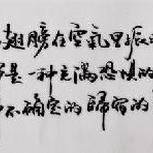 翅膀在空氣里振
是一种充滿恐惧的
不确定的歸宿的